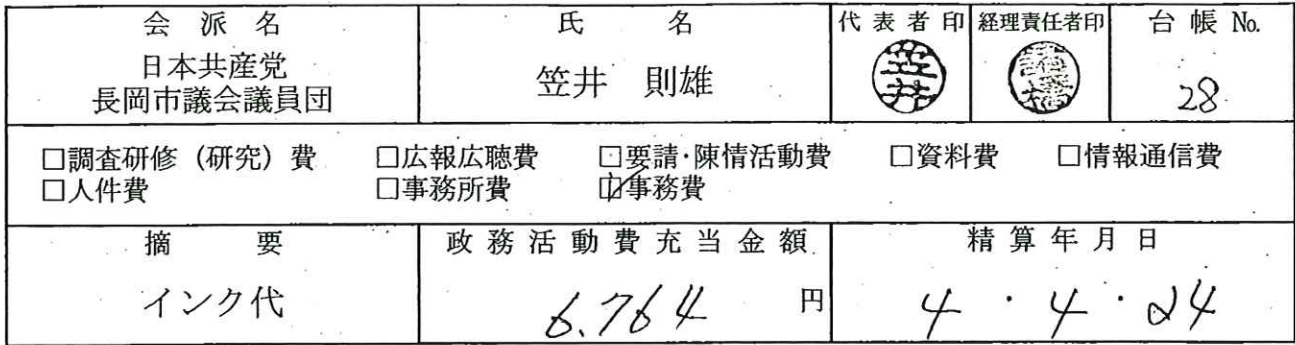 会派名 氏名 代表者印 経理責任者印 台帳No.
日本共産党
長岡市議会議員団
笠井 則雄
笠井
28
□調査研修(研究)費 □広報広聴費 □要請・陳情活動費 □資料費 □情報通信費
□人件費 □事務所費 ☑事務費
摘要 政務活動費充当金額 精算年月日
インク代 6.764 円 4・4・24